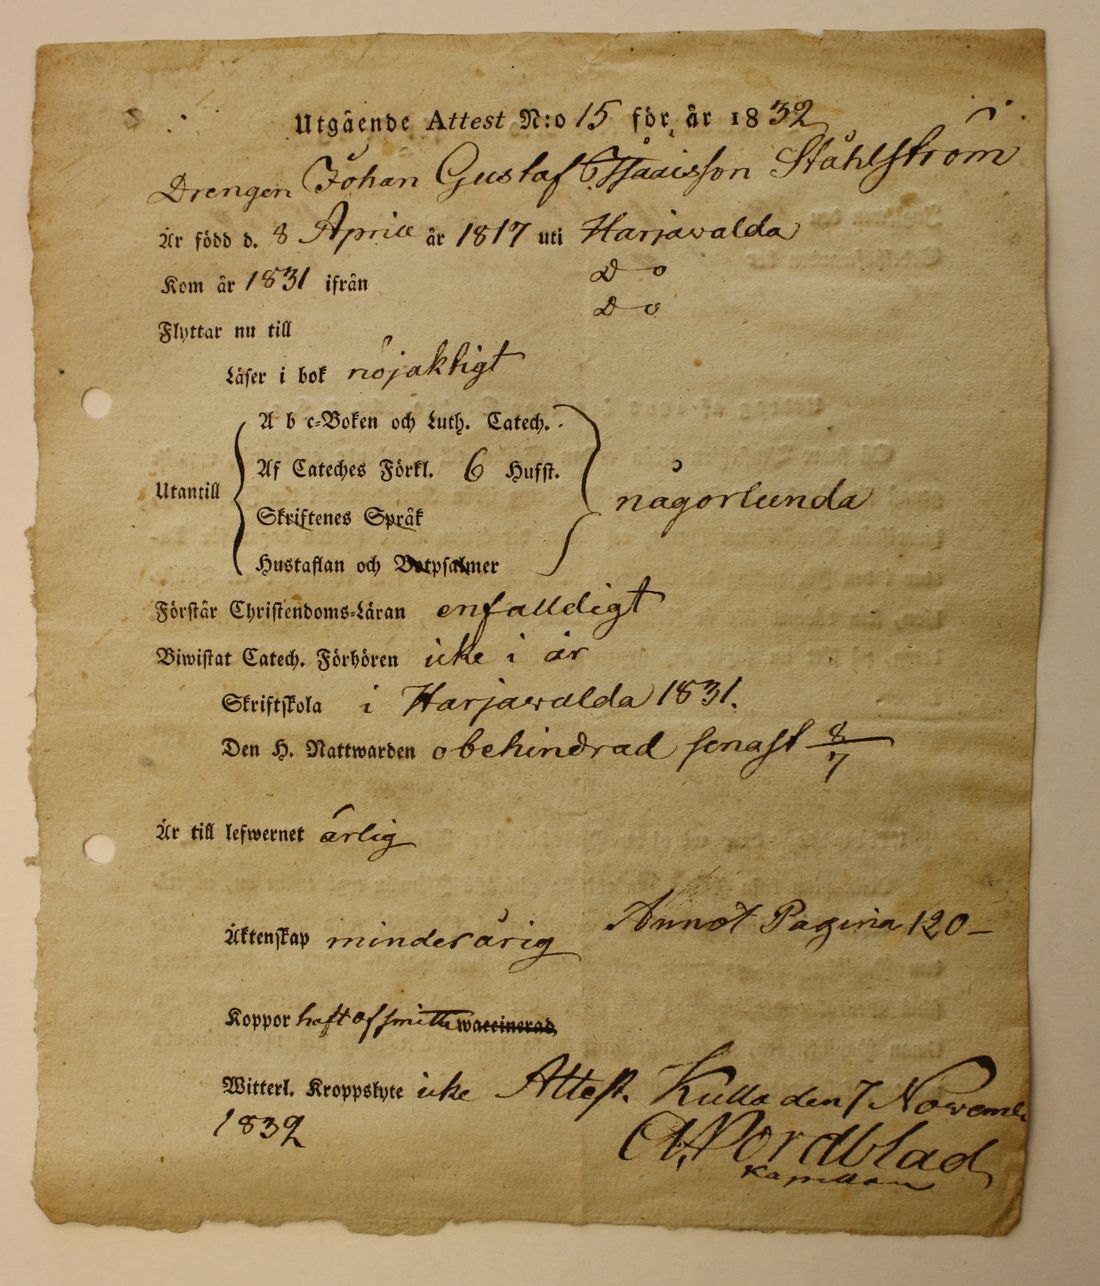 Utgående Attest N:o 15 för år 1832
Drengen Johan Gustaf Isaaisson Ståhlström
Är född d. 8 Aprill år 1817 uti Harjavalda
Kom år 1831 ifrån Do
Flyttar nu till Do
Läser i bok nöjaktigt
A b c-Boken och Luth. Catech.
Af Cateches Förkl. 6 Hufst.
Utantill
någorlunda
Skriftenes Språk
Hustaflan och Botpsalmer
Förstår Christendoms-Läran enfalldigt
Biwistat Catech. Förhören icke i år
Skriftskola i Harjavalda 1831.
Den H. Nattwarden obehindrad senast 8/7
Är till lefwernet ärlig
Annot Pagina 120
Äktenskap minderårig
Koppor haft af smitta waccinerad
Witterl. Kroppslyte icke Attest. Kulla den 7 Novemb.
1832
Nordblad
Kapellan